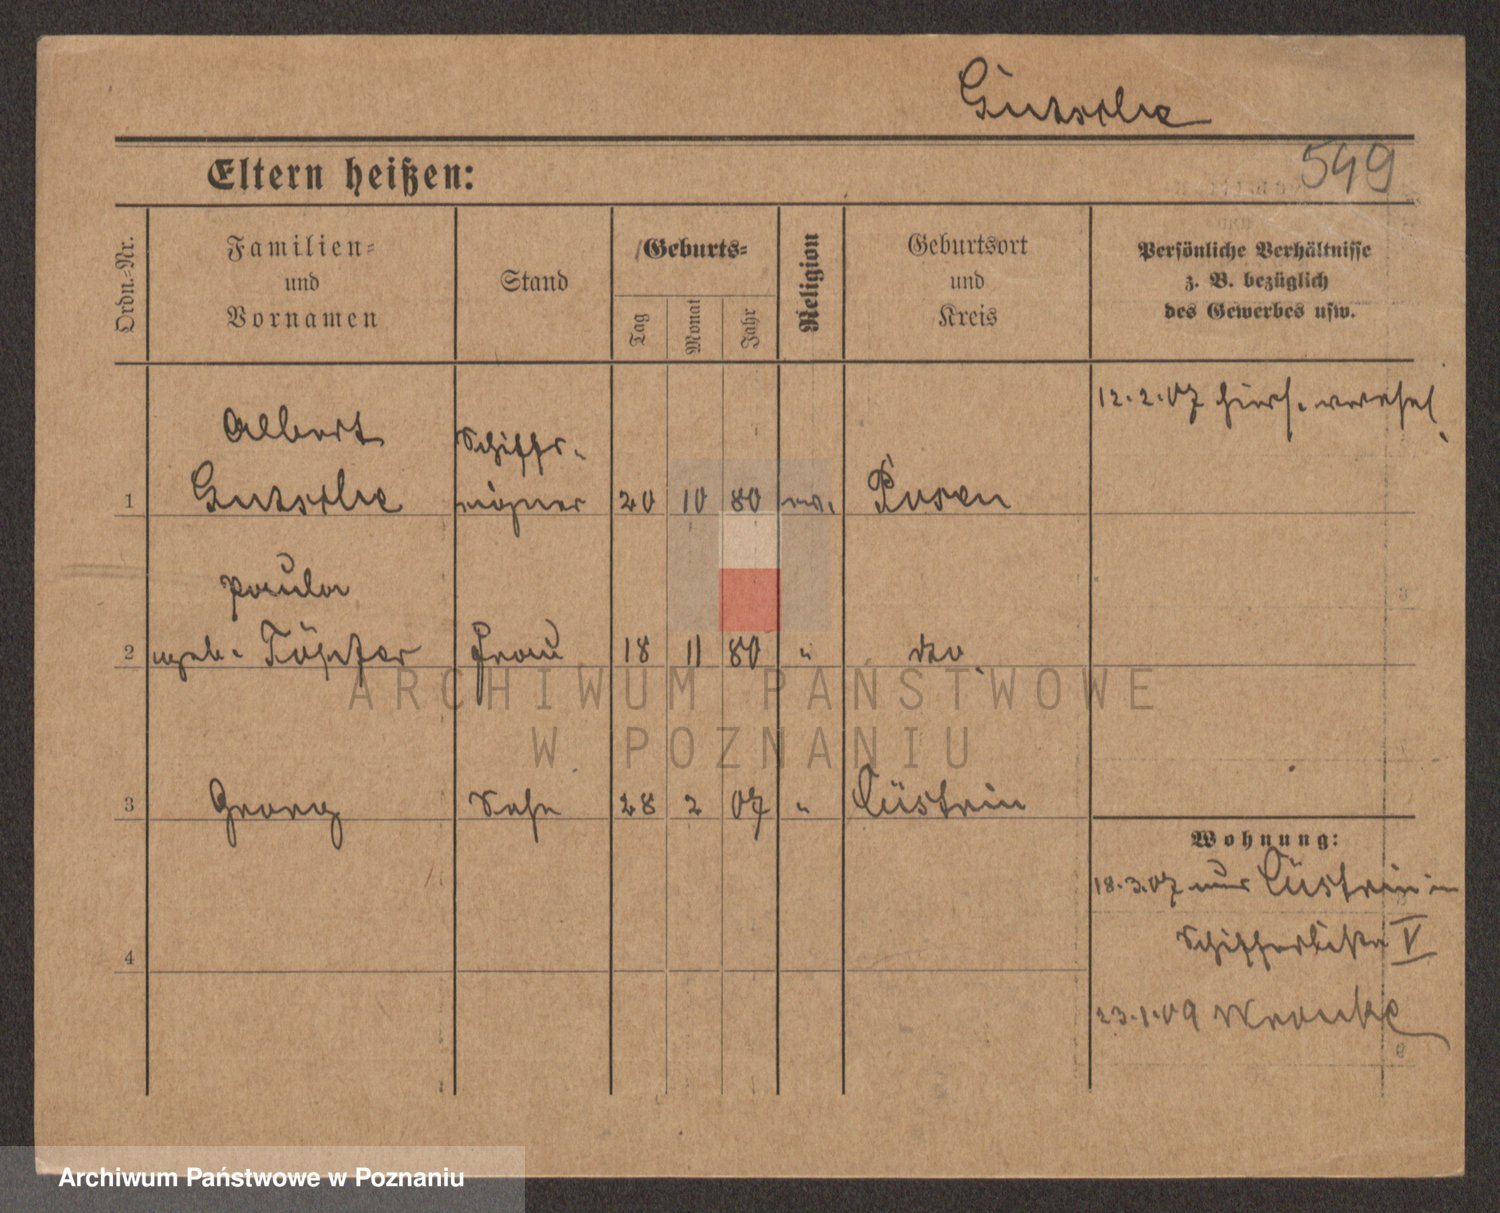 Gutsche
549
Eltern heißen:
Ordn.-Nr.
Familien-
und
Vornamen
Stand
Geburts-
Tag
Monat
Jahr
Religion
Geburtsort
und
Kreis
Persönliche Verhältnisse
z. B. bezüglich
des Gewerbes usw.
12.2.07 hier
Albert
Schiffs-
1 Gutsche eigner 20 10 80 ev. Posen
Paula
2 geb. Töpfer Frau 18 11 80 " dto
3 Georg Sohn 28 2 07 " Cüstrin
Wohnung:
18.3.07 aus Cüstrin in
Schifferliste V
4
23.1.09 Wronke
ARCHIWUM PAŃSTWOWE
W POZNANIU
Archiwum Państwowe w Poznaniu